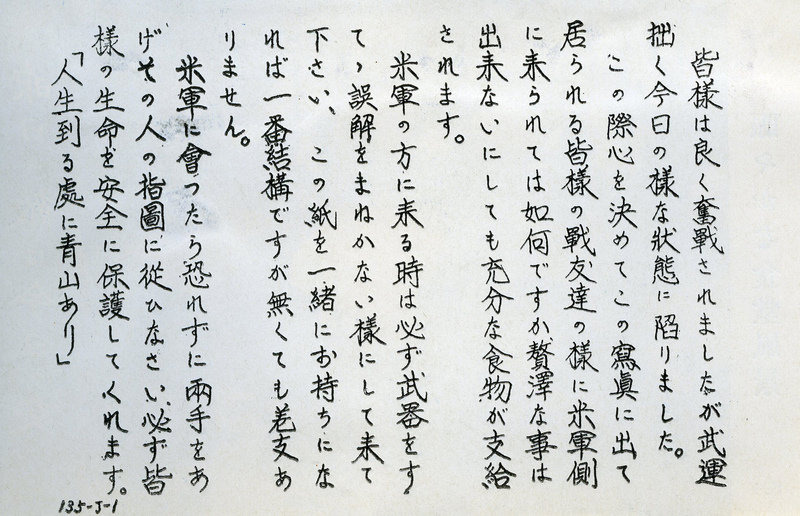 皆様は良く奮戰されましたが武運
拙く今日の様な狀態に陷りました。
この際心を決めてこの寫眞に出て
居られる皆様の戰友達の様に米軍側
に来られては如何ですか贅澤な事は
出来ないにしても充分な食物が支給
されます。
米軍の方に来る時は必ず武器をす
てゝ誤解をまねかない様にして来て
下さい、この紙を一緒にお持ちにな
れば一番結構ですが無くても差支あ
りません。
米軍に會つたら恐れずに兩手をあ
げその人の指圖に從ひなさい、必ず皆
様の生命を安全に保護してくれます。
「人生到る處に青山あり」
135-J-1